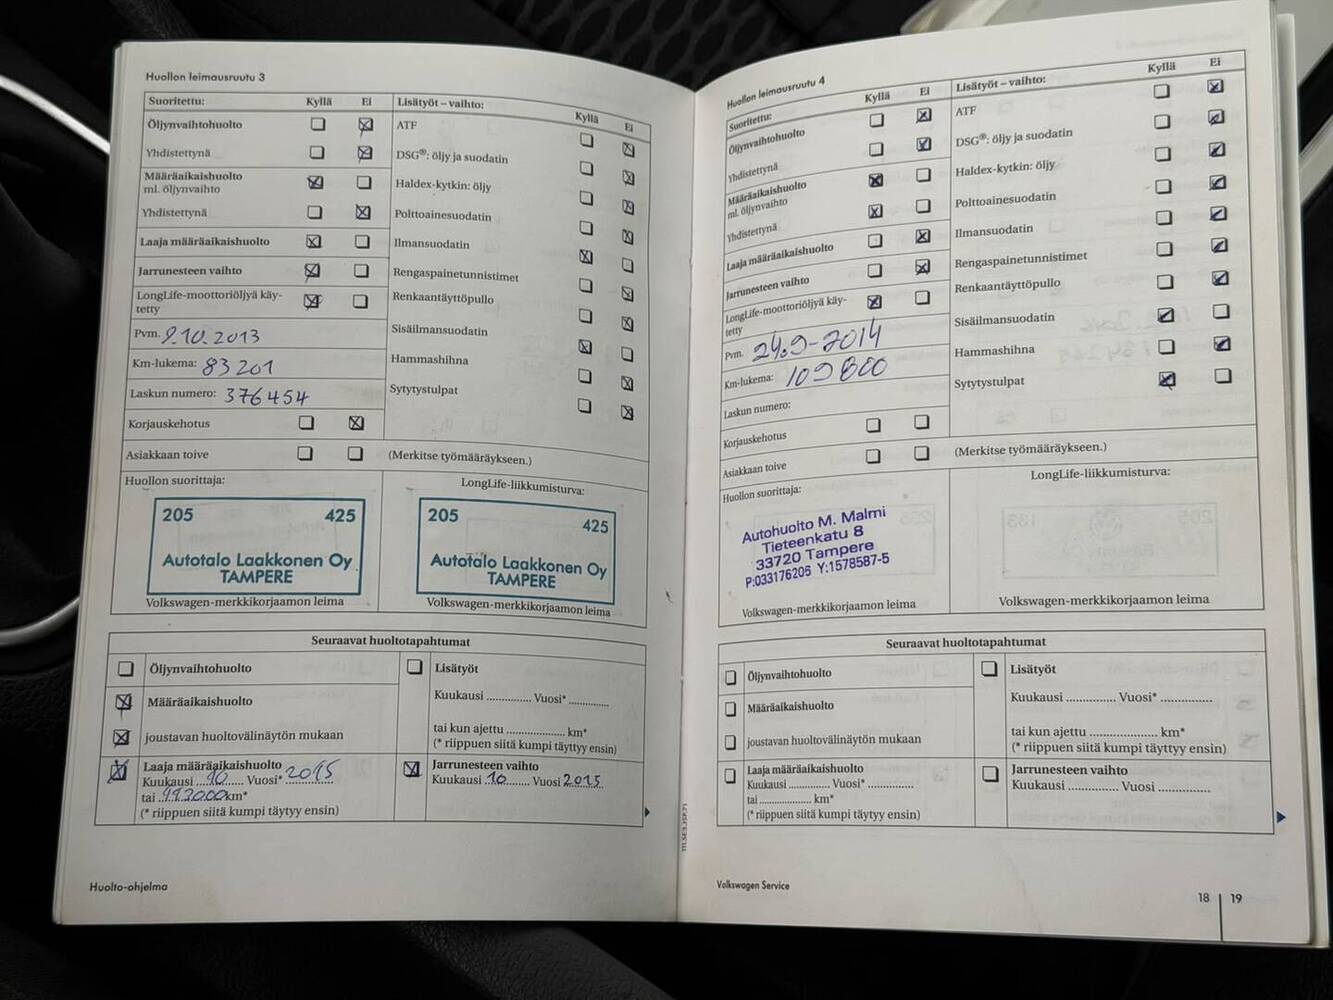 Huollon leimausruutu 3
Suoritettu: Kyllä Ei
Öljynvaihtohuolto
Yhdistettynä
Määräaikaishuolto
ml. öljynvaihto
Yhdistettynä
Laaja määräaikaishuolto
Jarrunesteen vaihto
LongLife-moottoriöljyä käy-
tetty
Pvm. 9.10.2013
Km-lukema: 83201
Laskun numero: 376454
Korjauskehotus
Asiakkaan toive
Lisätyöt – vaihto: Kyllä Ei
ATF
DSG®: öljy ja suodatin
Haldex-kytkin: öljy
Polttoainesuodatin
Ilmansuodatin
Rengaspainetunnistimet
Renkaantäyttöpullo
Sisäilmansuodatin
Hammashihna
Sytytystulpat
(Merkitse työmääräykseen.)
Huollon suorittaja:
205 425
Autotalo Laakkonen Oy
TAMPERE
Volkswagen-merkkikorjaamon leima
LongLife-liikkumisturva:
205 425
Autotalo Laakkonen Oy
TAMPERE
Volkswagen-merkkikorjaamon leima
Seuraavat huoltotapahtumat
Öljynvaihtohuolto
Määräaikaishuolto
joustavan huoltovälinäytön mukaan
Laaja määräaikaishuolto
Kuukausi 10 Vuosi* 2015
tai 113000 km*
(* riippuen siitä kumpi täytyy ensin)
Lisätyöt
Kuukausi .............. Vuosi* ............
tai kun ajettu .................. km*
(* riippuen siitä kumpi täytyy ensin)
Jarrunesteen vaihto
Kuukausi 10 Vuosi 2015
Huolto-ohjelma
Huollon leimausruutu 4
Suoritettu: Kyllä Ei
Öljynvaihtohuolto
Yhdistettynä
Määräaikaishuolto
ml. öljynvaihto
Yhdistettynä
Laaja määräaikaishuolto
Jarrunesteen vaihto
LongLife-moottoriöljyä käy-
tetty
Pvm. 24.9-2014
Km-lukema: 109800
Laskun numero:
Korjauskehotus
Asiakkaan toive
Lisätyöt – vaihto: Kyllä Ei
ATF
DSG®: öljy ja suodatin
Haldex-kytkin: öljy
Polttoainesuodatin
Ilmansuodatin
Rengaspainetunnistimet
Renkaantäyttöpullo
Sisäilmansuodatin
Hammashihna
Sytytystulpat
(Merkitse työmääräykseen.)
Huollon suorittaja:
Autohuolto M. Malmi
Tieteenkatu 8
33720 Tampere
P:033176206 Y:1578587-5
Volkswagen-merkkikorjaamon leima
LongLife-liikkumisturva:
Volkswagen-merkkikorjaamon leima
Seuraavat huoltotapahtumat
Öljynvaihtohuolto
Määräaikaishuolto
joustavan huoltovälinäytön mukaan
Laaja määräaikaishuolto
Kuukausi .............. Vuosi* ..............
tai .................... km*
(* riippuen siitä kumpi täytyy ensin)
Lisätyöt
Kuukausi ............... Vuosi* ...............
tai kun ajettu .................. km*
(* riippuen siitä kumpi täytyy ensin)
Jarrunesteen vaihto
Kuukausi ............... Vuosi ...............
Volkswagen Service
18 19